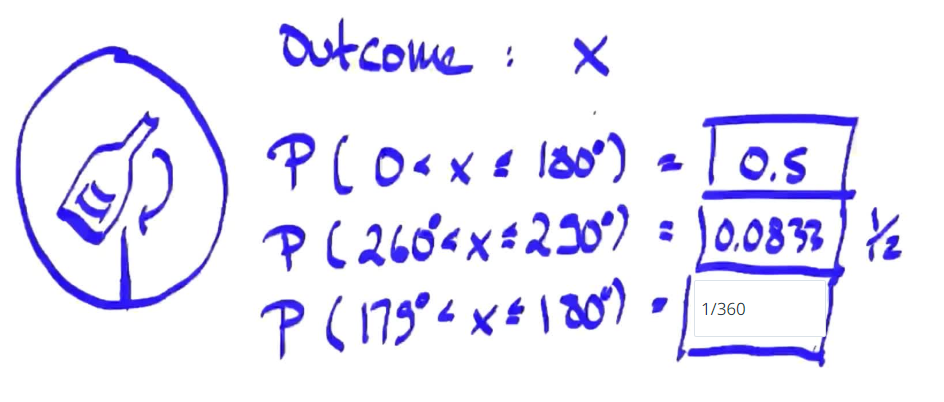 Outcome : X
P( 0 < x ≤ 180°) = 0.5
P(260°<x≤290°) = 0.0833 1/12
P(179° < x ≤ 180°) = 1/360